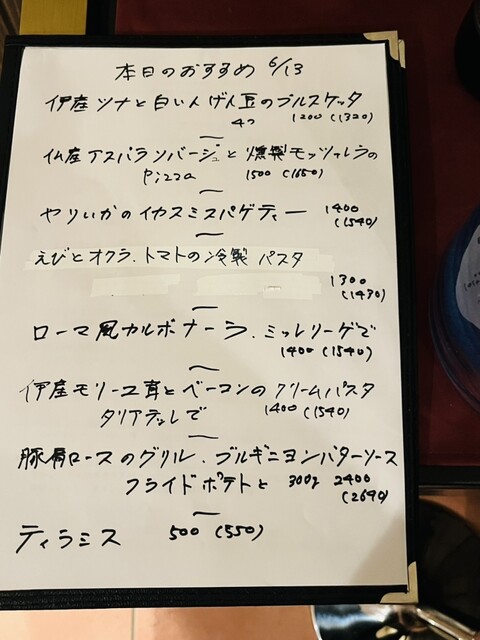 本日のおすすめ 6/13
伊産ツナと白いんげん豆のブルスケッタ
4コ 1200 (1320)
仏産アスパラソバージュと燻製モッツァレラの
Pizza 1500 (1650)
やりいかのイカスミスパゲティー 1400
(1540)
えびとオクラ、トマトの冷製パスタ
1300
(1430)
ローマ風カルボナーラ、ミッレリーゲで
1400 (1540)
伊産モリーユ茸とベーコンのクリームパスタ
タリアテッレで 1400 (1540)
豚肩ロースのグリル、ブルギニヨンバターソース
フライドポテトと 300g 2400
(2640)
ティラミス 500 (550)